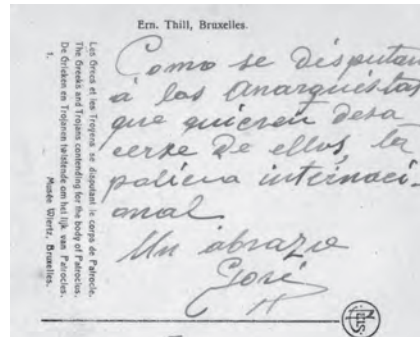 Ern. Thill, Bruxelles.
Les Grecs et les Troyens se disputant le corps de Patrocle.
The Greeks and Trojans contending for the body of Patroclus.
De Grieken en Trojanen twistende om het lijk van Patrocles.
1. Musée Wiertz, Bruxelles.
Como se disputan
á los Anarquistas
que quieren desa
cerse de ellos, la
policia internaci-
onal
Un abrazo
José